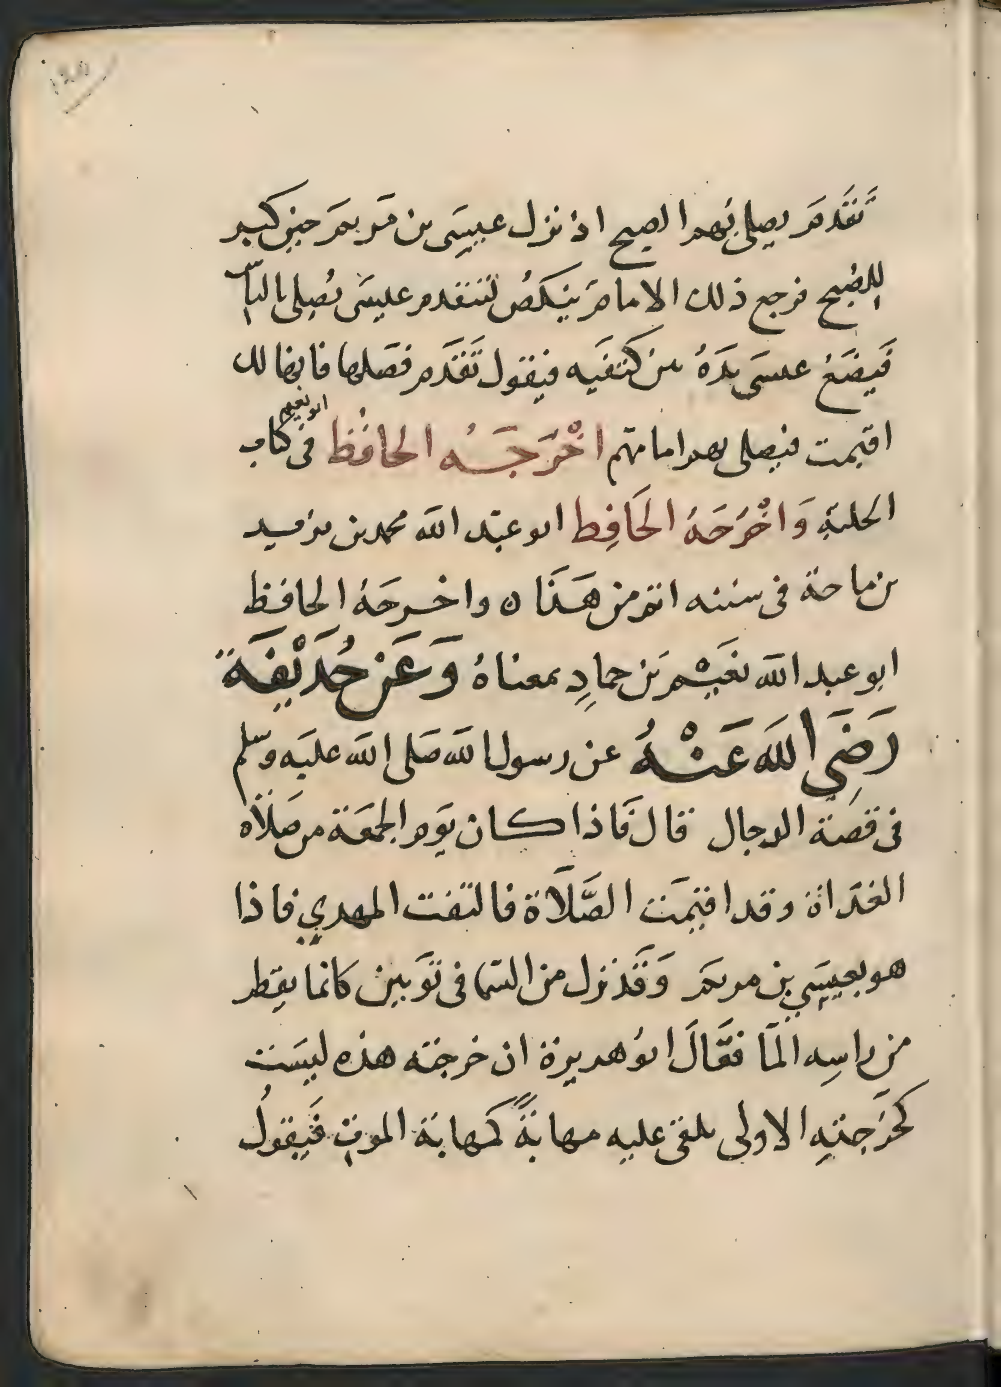 تَقَدَمَ يصلي بهم الصبح اذ نزل عيسَى بن مَريمَ حين كبر
للصُبح فرجع ذلك الامامُ ينكصُ لتَتقدم عليسَى يُصلي بالناس
فَيضَعُ عيسَى يَدَهُ بين كتفَيه فيقول تَقدَم فصَلها فانها لك
اقيمت فيصلي بهم امامهم اخْرَجَـــه الحافظ ابو نعيم في كتاب
الحلية وَاخْرَجَهُ الحَافِظ ابو عَبْد الله محمد بن يزيد
بن ماجة في سننه اتم من هَذَا ٥ واخـرجَهُ الحافظ
ابو عبد الله نعَيْم بَن حمادِ بمعناهُ وَعَنْ حُذَيْفَة
رَضَيَ اللَه عَنْــهُ عن رسول الله صَلى الله عليَه وسلم
في قصَة الدجال قال فَاذا كــان يَوم الجمعَة من صَلاة
الغدَاة وقد اقيمَت الصَّلَاة فالتفت المهدي فاذا
هو بعيسَي بن مريَمَ وَقَد نزل من السَما في ثوبين كانما يقطر
من راسِه المَا فقَالَ ابُو هريرة ان خرجته هذه ليسَت
كخَرجتهِ الاولى يلقى عليه مهابةً كمهابة الموت فَيقولُ